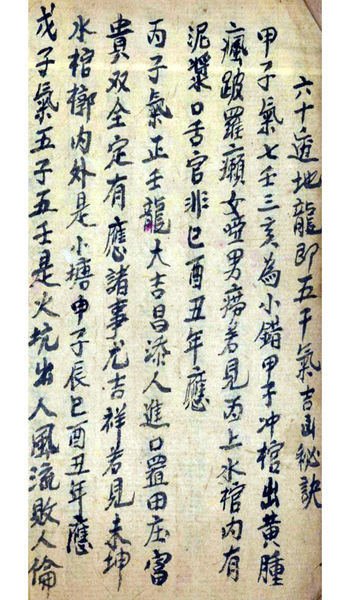 六十透地龍即五子氣吉凶秘訣
甲子氣七壬三亥為小錯甲子冲棺出黃腫
瘋跛羅癩女啞男癆若見丙上水棺內有
泥漿口舌官非巳酉丑年應
丙子氣正壬龍大吉昌添人進口置田庄富
貴双全定有應諸事尤吉祥若見未坤
水棺槨內外是小塘申子辰巳酉丑年應
戊子氣五子五壬是火坑出人風流敗人倫